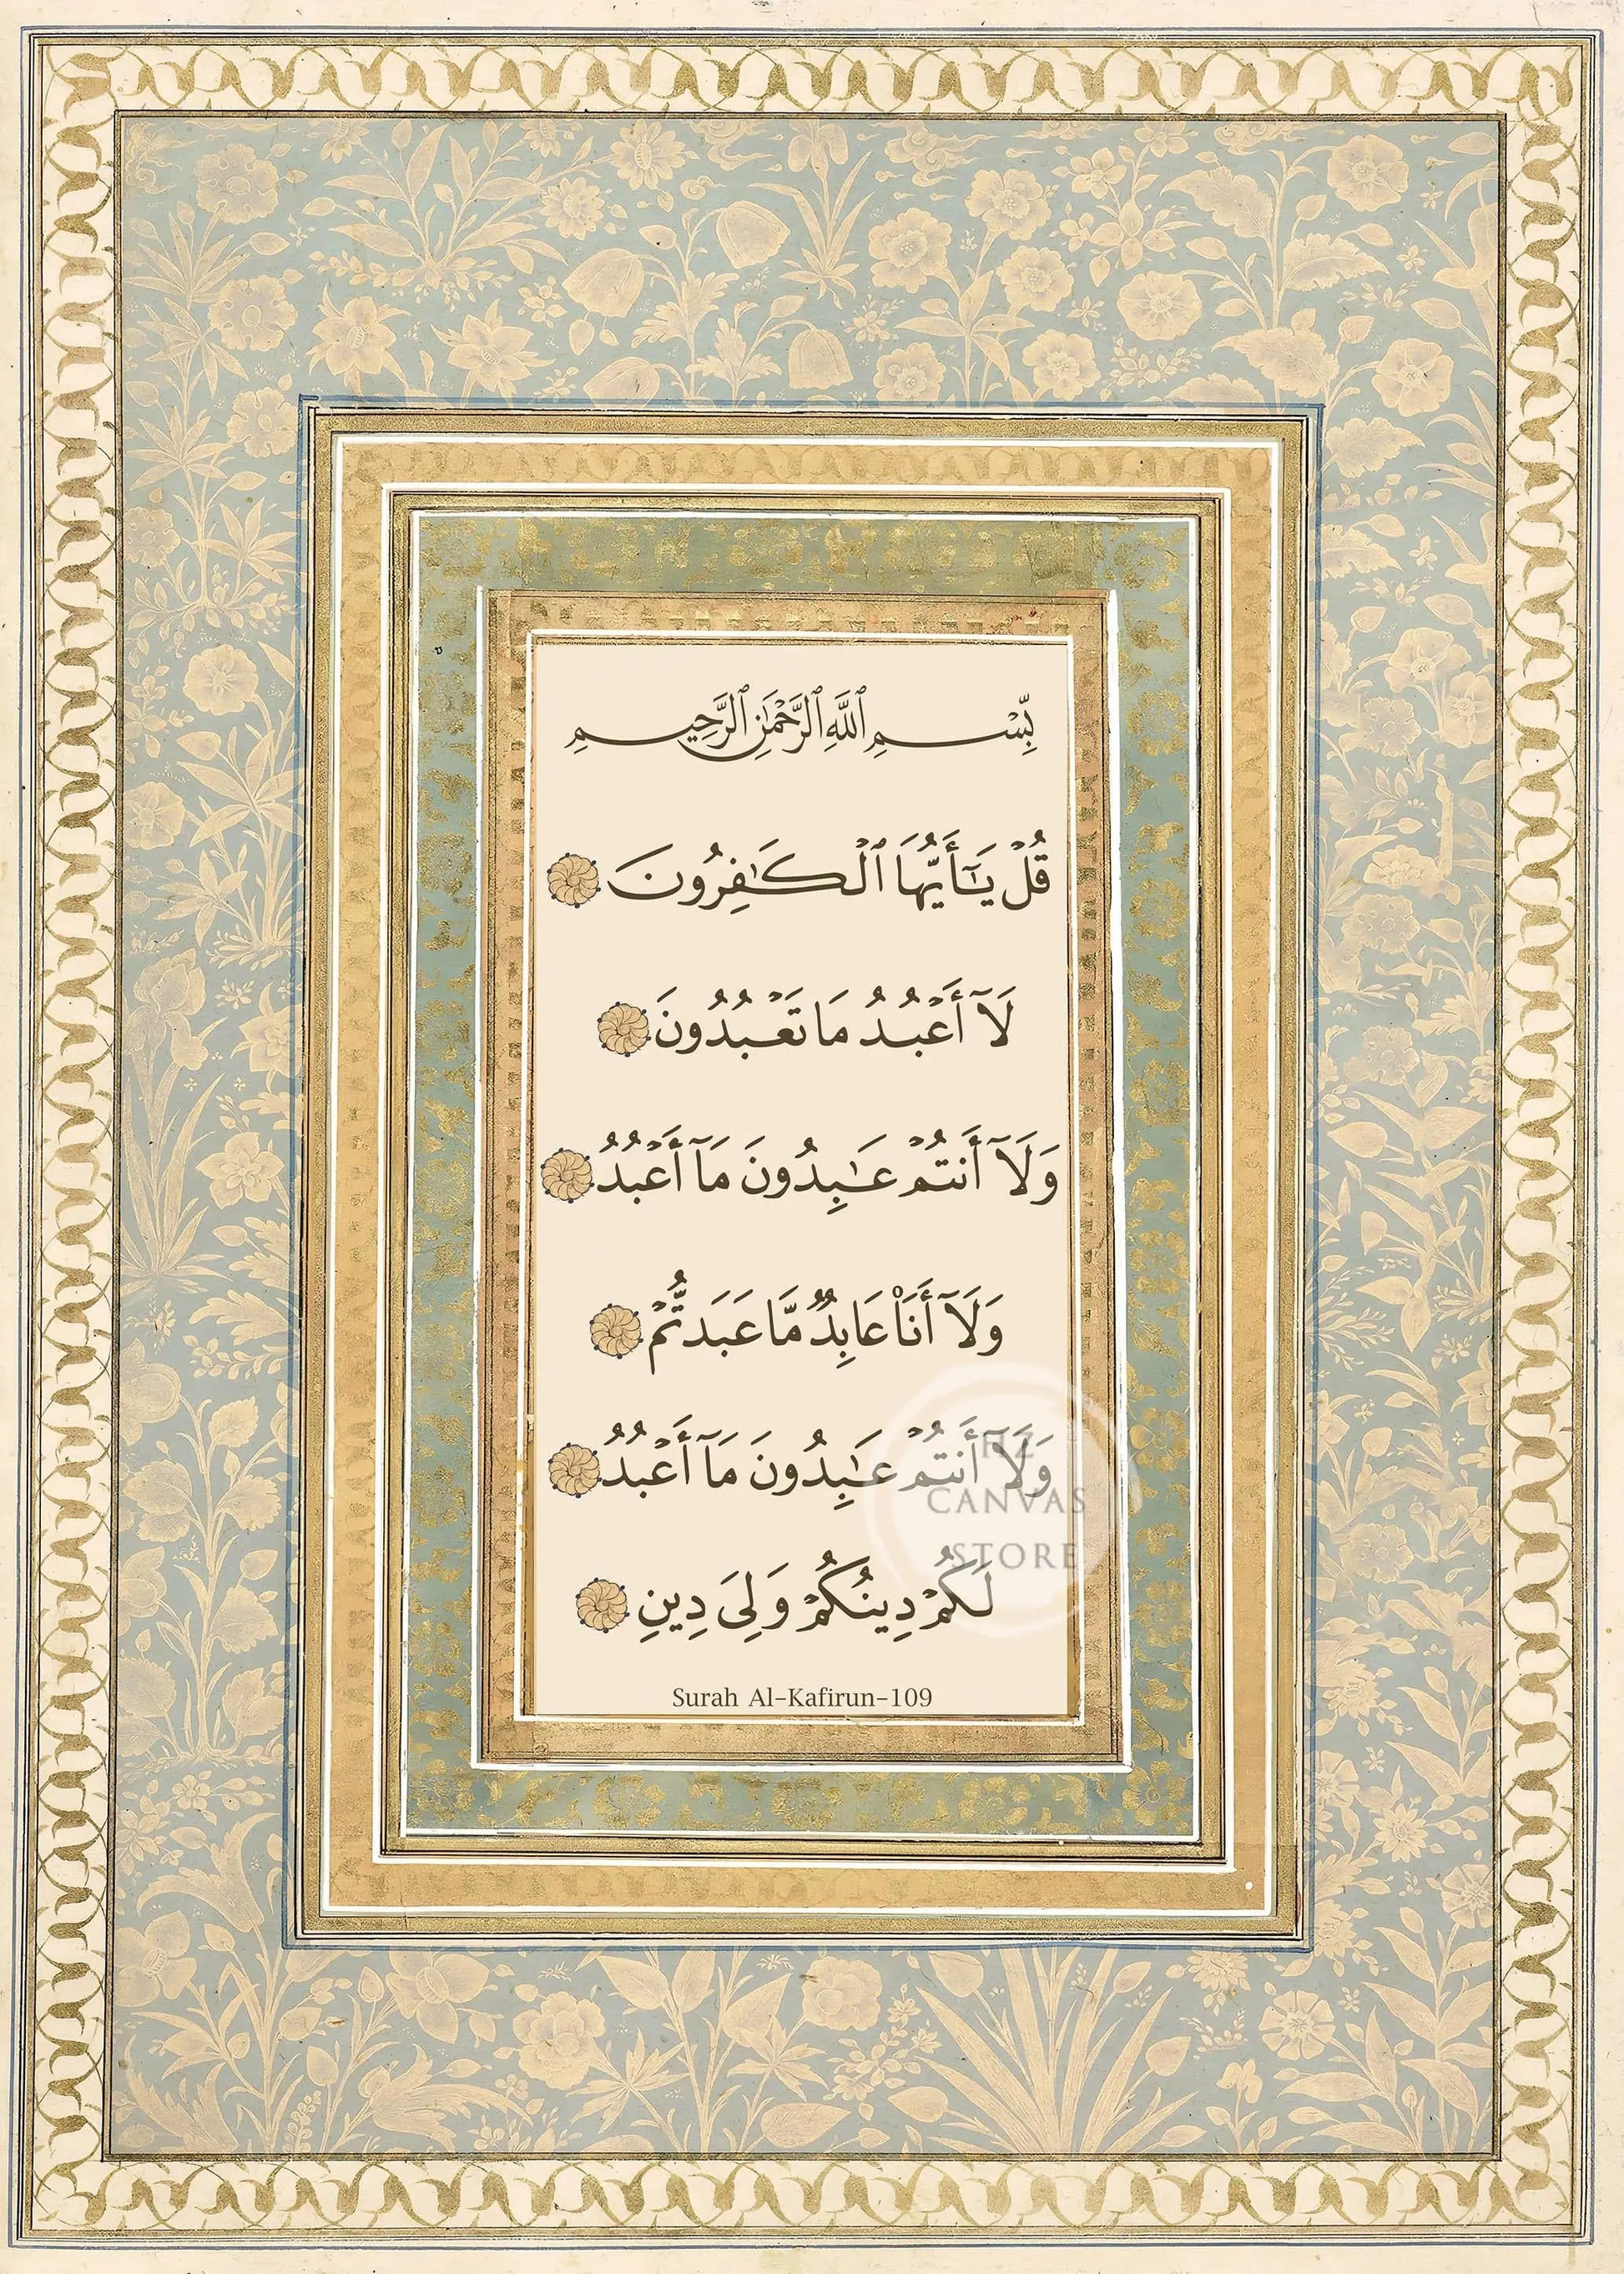 بِّسْمِ ٱللَّهِ ٱلرَّحْمَٰنِ ٱلرَّحِيمِ
قُلْ يَٰٓأَيُّهَا ٱلْكَٰفِرُونَ
لَآ أَعْبُدُ مَا تَعْبُدُونَ
وَلَآ أَنتُمْ عَٰبِدُونَ مَآ أَعْبُدُ
وَلَآ أَنَا۠ عَابِدٌ مَّا عَبَدتُّمْ
وَلَآ أَنتُمْ عَٰبِدُونَ مَآ أَعْبُدُ
CANVAS
STORE
لَكُمْ دِينُكُمْ وَلِىَ دِينِ
Surah Al-Kafirun-109